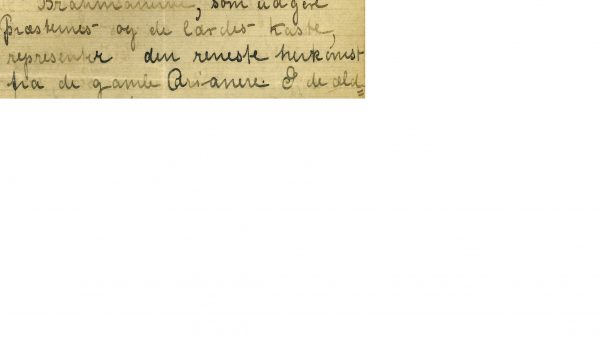 Brahmanerne, som udgøre
præsternes og de lærdes kaste,
representer den reneste herkomst
fra de gamle Arianere. I de æld=